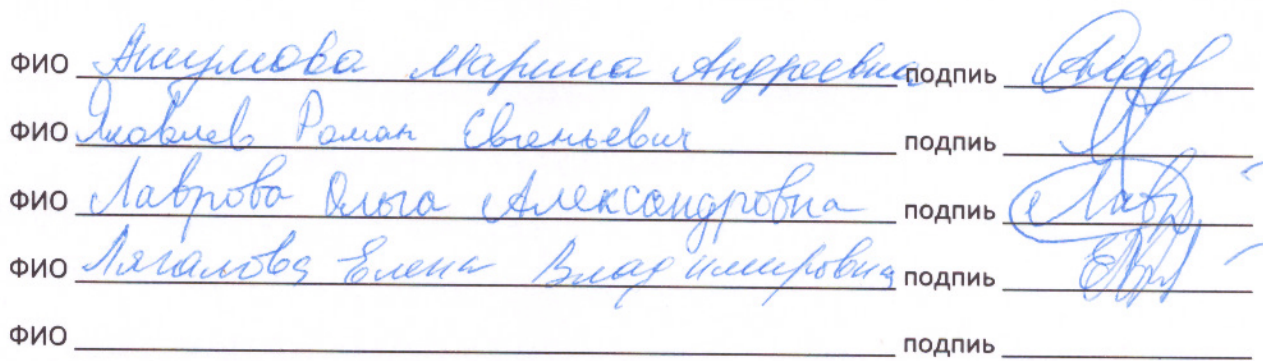 ФИО Марина Андреевна подпиь
ФИО Яковлев Роман Евгеньевич подпиь
ФИО Лаврова Ольга Александровна подпиь Лавр
ФИО Лягалова Елена Владимировна подпиь
ФИО подпиь